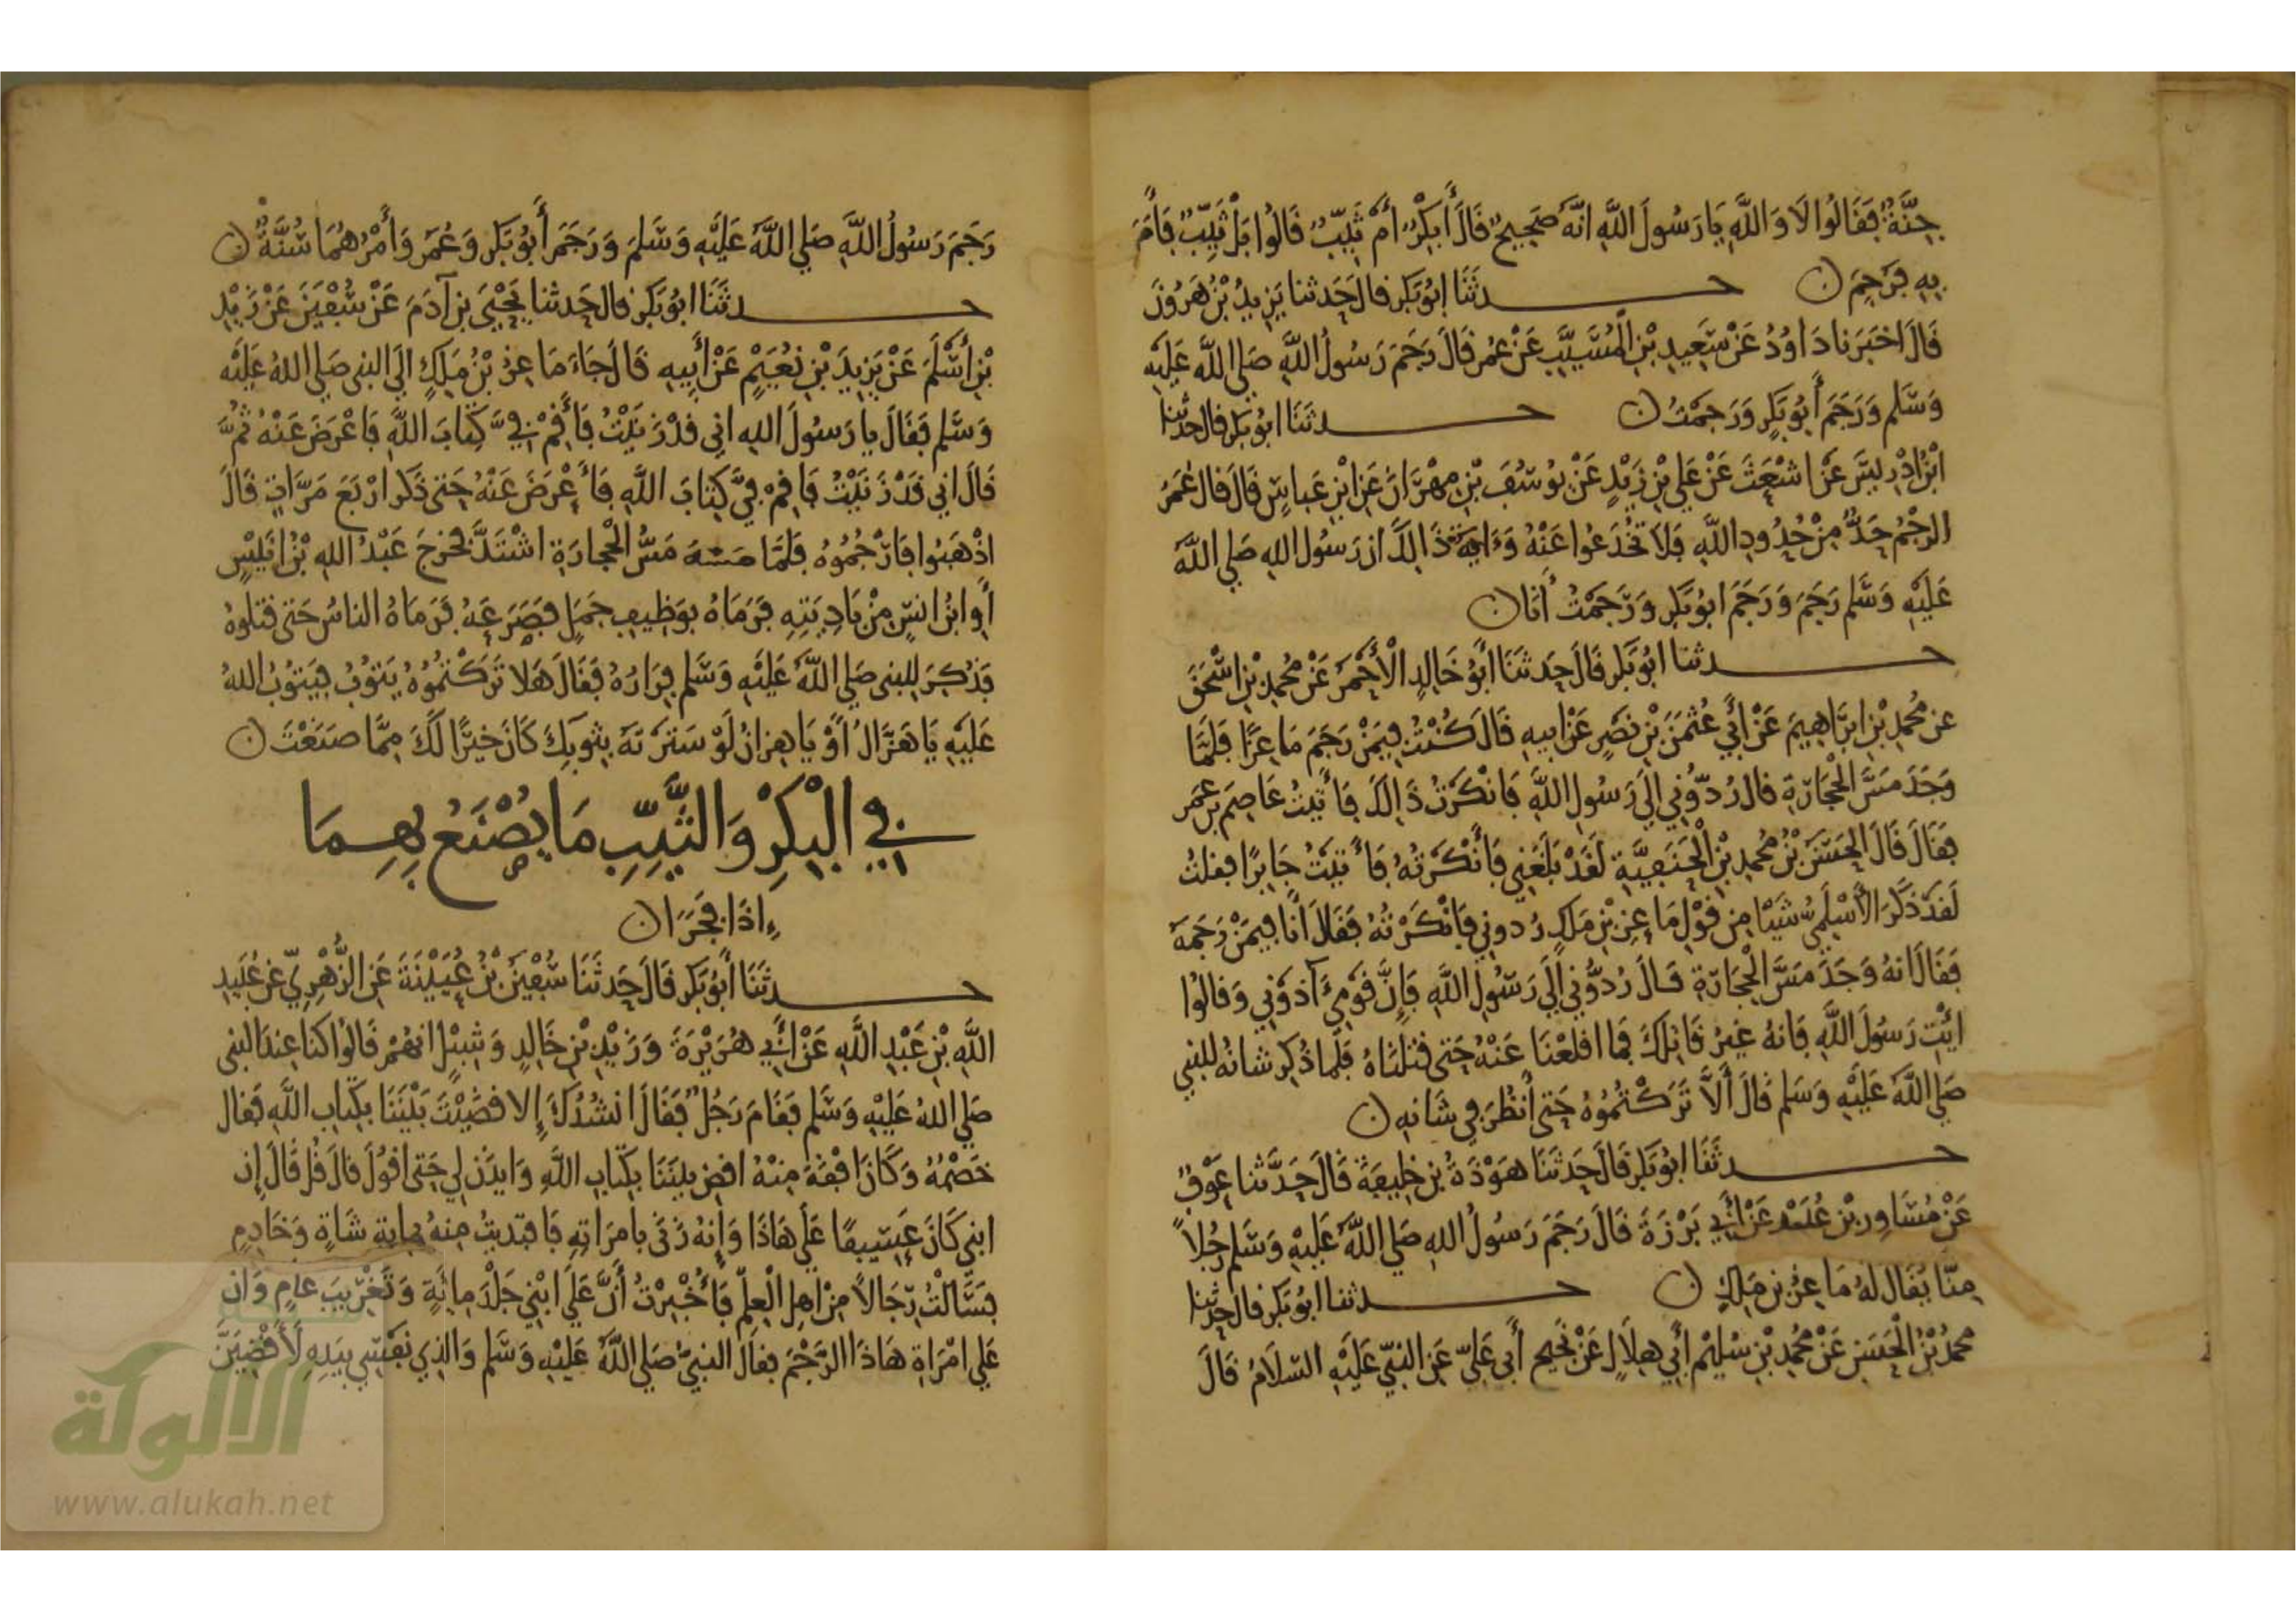 جِنَّةٌ فَقَالُوا لَا وَاللَّهِ يَا رَسُولَ اللَّهِ انَّهُ صَحِيحٌ قَالَ أَبِكْرٌ أَمْ ثَيِّبٌ قَالُوا بَلْ ثَيِّبٌ فَأَمَرَ
بِهِ فَرُجِمَ ن حدثَنَا ابُو بَكر قال حَدثنا يَزِيدُ بْنُ هَرُونَ
قَالَ اخبَرَنا دَاوُدُ عَنْ سَعِيدِ بْنِ الْمُسَيَّبِ عَنْ عُمر قَالَ رَجَمَ رَسُولُ اللَّهِ صَلي اللَّه عَلَيْهِ
وَسَّلم وَرَجَمَ أَبُو بَكرٍ وَرَجمْتُ ن حدثَنَا ابو بَكر قال حدثنا
ابْنُ اذْرِيسَ عَنْ اشْعَثَ عَنْ عَلي بْنِ زَيْدٍ عَنْ يُوسُفَ بْنِ مِهْرَانَ عَنِ ابْنِ عَباسٍ قَالَ قال عُمَرُ
الرجْمُ حَدٌّ مِنْ حُدُودِ اللَّهِ فَلَا تخْدَعُوا عَنْهُ وَءَايَةُ ذَالِكَ ان رَسُولَ الله صَلي اللَّهُ
عَلَيْهِ وَسَّلم رَجَمَ وَرَجَمَ ابُو بَكرٍ وَرَجَمْتُ أَنَا ن
حدثنا ابُو بَكر قَالَ حَدثَنَا أَبُو خَالِدٍ الْأَحْمَرُ عَنْ مُحمدِ بْنِ اسْحَقَ
عن مُحمدِ بْنِ ابرَاهِيمَ عَنْ أَبِي عُثْمَنَ بْنِ نَصْرٍ عَنْ ابيه قَالَ كُنْتُ فِيمَنْ رَجَمَ مَاعِزًا فَلَمَّا
وَجَدَ مَسَّ الْحِجَارَةِ قال رُدُّونِي إِلَى رَسُولِ اللَّهِ فَانْكَرْتُ ذَالِكَ فَأَتَيتُ عَاصِمَ بن عُمَر
فَقَالَ قَالَ الْحَسَنُ بْنُ مُحمدِ بْنِ الْحَنَفِيَّةِ لَقَدْ بَلَغَنِي فَأَنْكَرْتُهُ فَأَتَيْتُ جَابِرًا فقلتُ
لَقَدْ ذَكَرَ الأَسْلَمِيُّ شَيْئا مِن قَوْلِ مَاعِزِ بْنِ مَلِكٍ رُدوني فَانْكَرْتُهُ فَقَالَ أَنَا فِيمَنْ رَجَمَهُ
فَقَالَ انهُ وَجَدَ مَسَّ الْحِجَارَةِ قَالَ رُدُّونِي إِلَى رَسُولِ اللَّهِ فَإِنَّ قَوْمِي آذَوْنِي وَقالُوا
ائْتِ رَسُولَ اللَّهِ فَانهُ غَيْرُ قَاتِلِكَ فَما اقلَعْنَا عَنْهُ حَتى قتلْنَاهُ فَلَما ذُكِر شانُهُ للنبي
صَلي اللَّهُ عَلَيْهِ وَسَلم قَالَ أَلَّا تَرَكْتُمُوهُ حَتى أَنْظُرَ فِي شَانِهِ ن
حدثَنَا ابُو بَكر قَالَ حَدثَنَا هَوْذَةُ بْنُ خَلِيفَةَ قَالَ حَدَّثنا عَوْفٌ
عَنْ مُسَاوِرِ بْنِ عُبَيْد عَنْ أَبِي بَرْزَةَ قَالَ رَجَمَ رَسُولُ الله صَلَّى اللَّهُ عَلَيْهِ وَسَّلم رَجُلًا
مِنَّا يُقَال لَهُ مَاعِزُ بْنُ مَلِكٍ ن حدثنا ابُو بَكر قال حدثنا
مُحمدُ بْنُ الْحَسَنِ عَنْ مُحمدِ بْنِ سُلَيْم أَبِي هِلَالٍ عَنْ نَجِيح أَبِي عَلِيّ عَنِ النبيّ عَلَيْهِ السّلَامُ قَالَ
رَجَمَ رَسُولُ اللَّهِ صَلي اللَّهُ عَلَيْهِ وَسَلمَ وَرَجَمَ أَبُو بَكر وَعُمَر وَأَمْرُهُمَا سُنَّةٌ ن
حدثَنَا ابُو بَكر قال حَدثنا يَحْيَى بن آدَمَ عَنْ سُفْيَنَ عَنْ زَيْدِ
بْنِ أَسْلَمَ عَنْ يَزِيدَ بْنِ نُعَيْمٍ عَنْ أَبِيهِ قَالَ جَاءَ مَاعِزُ بْنُ مَلِكٍ الَي النبي صَلي اللهُ عَلَيْه
وَسَّلم فَقَالَ يا رَسُولَ الله اني قدْ زَنَيْتُ فَأَقِمْ فِيَّ كِتَابَ اللَّهِ فَاعْرَضَ عَنْهُ ثُمَّ
قَالَ اني قَدْ زَنَيْتُ فَاقِمْ فِيَّ كِتابَ اللَّهِ فَأَعْرَضَ عَنْهُ حَتى ذَكر ارْبَعَ مَرَّاتٍ قَالَ
اذْهَبُوا فَارْجُمُوهُ فَلَمَّا مَسَّهُ مَسُّ الْحِجارَةِ اشْتَدَّ فخرجَ عَبْدُ اللهِ بْنُ انَيْسٍ
أَوِ ابْنُ انَسٍ مِنْ بَادِيَتِهِ فَرَمَاهُ بوَظِيفِ جَمَلٍ فَصَرَعَهُ فَرَمَاهُ الناسُ حَتى قتلوهُ
فَذُكِرَ لِلنبي صَلي اللَّهُ عَلَيْهِ وَسَّلم فِرَارُهُ فَقَالَ هَلا تَرَكْتُمُوهُ يَتوُبُ فَيَتُوبُ اللهُ
عَلَيْهِ يَا هَزَّالُ أَوْ يَا هزانُ لَوْ سَتَرْتَهُ بِثوبِكَ كَانَ خَيْرًا لَكَ مِمَّا صَنَعْتَ ن
فِي الْبِكْرِ وَالثَّيِّبِ مَا يُصْنَعُ بِهِمَا
اذَا فَجَرَا ن
حدثَنَا أَبُو بَكر قَالَ حَدثَنَا سُفْيَنُ بْنُ عُيَيْنَةَ عَنِ الزُّهْرِيِّ عَن عُبَيْدِ
اللَّهِ بْنِ عَبْدِ اللَّهِ عَنْ أَبِي هُرَيْرَةَ وَزَيْدِ بْنِ خَالِدٍ وَشِبْلٍ انهُمْ قَالُوا كنا عِندَ النبي
صَلي اللهُ عَلَيْهِ وَسَّلم فَقَامَ رَجُلٌ فَقَالَ انشُدُكَ إِلا قضَيْتَ بَيْنَنَا بِكِتابِ اللَّهِ فَقال
خَصْمُهُ وَكَانَ افْقَهَ مِنْهُ اقضِ بيْنَنَا بِكِتَابِ اللَّهِ وَايذَن لِي حَتى اقُولَ قَالَ قُل قَالَ إن
ابني كَانَ عَسِيفًا عَلَى هَاذَا وَإِنهُ زَنَى بِامرَاتِهِ فَافتَديتُ مِنهُ بمايةِ شَاةٍ وَخَادِمٍ
فَسَأَلْتُ رِجَالًا مِنْ اهلِ الْعِلمِ فَأُخْبِرْتُ أَنَّ عَلَي ابْنِي جَلْدَ مِائَةٍ وَتَغْرِيبَ عامٍ وَان
عَلي امْرَاةِ هَاذَا الرَّجْمَ فقال النبيُّ صَلي اللَّهُ عَلَيْهِ وَسَّلم وَالذي نَفسِي بِيَدِهِ لَأَقْضِيَنَّ
الألوكة
www.alukah.net